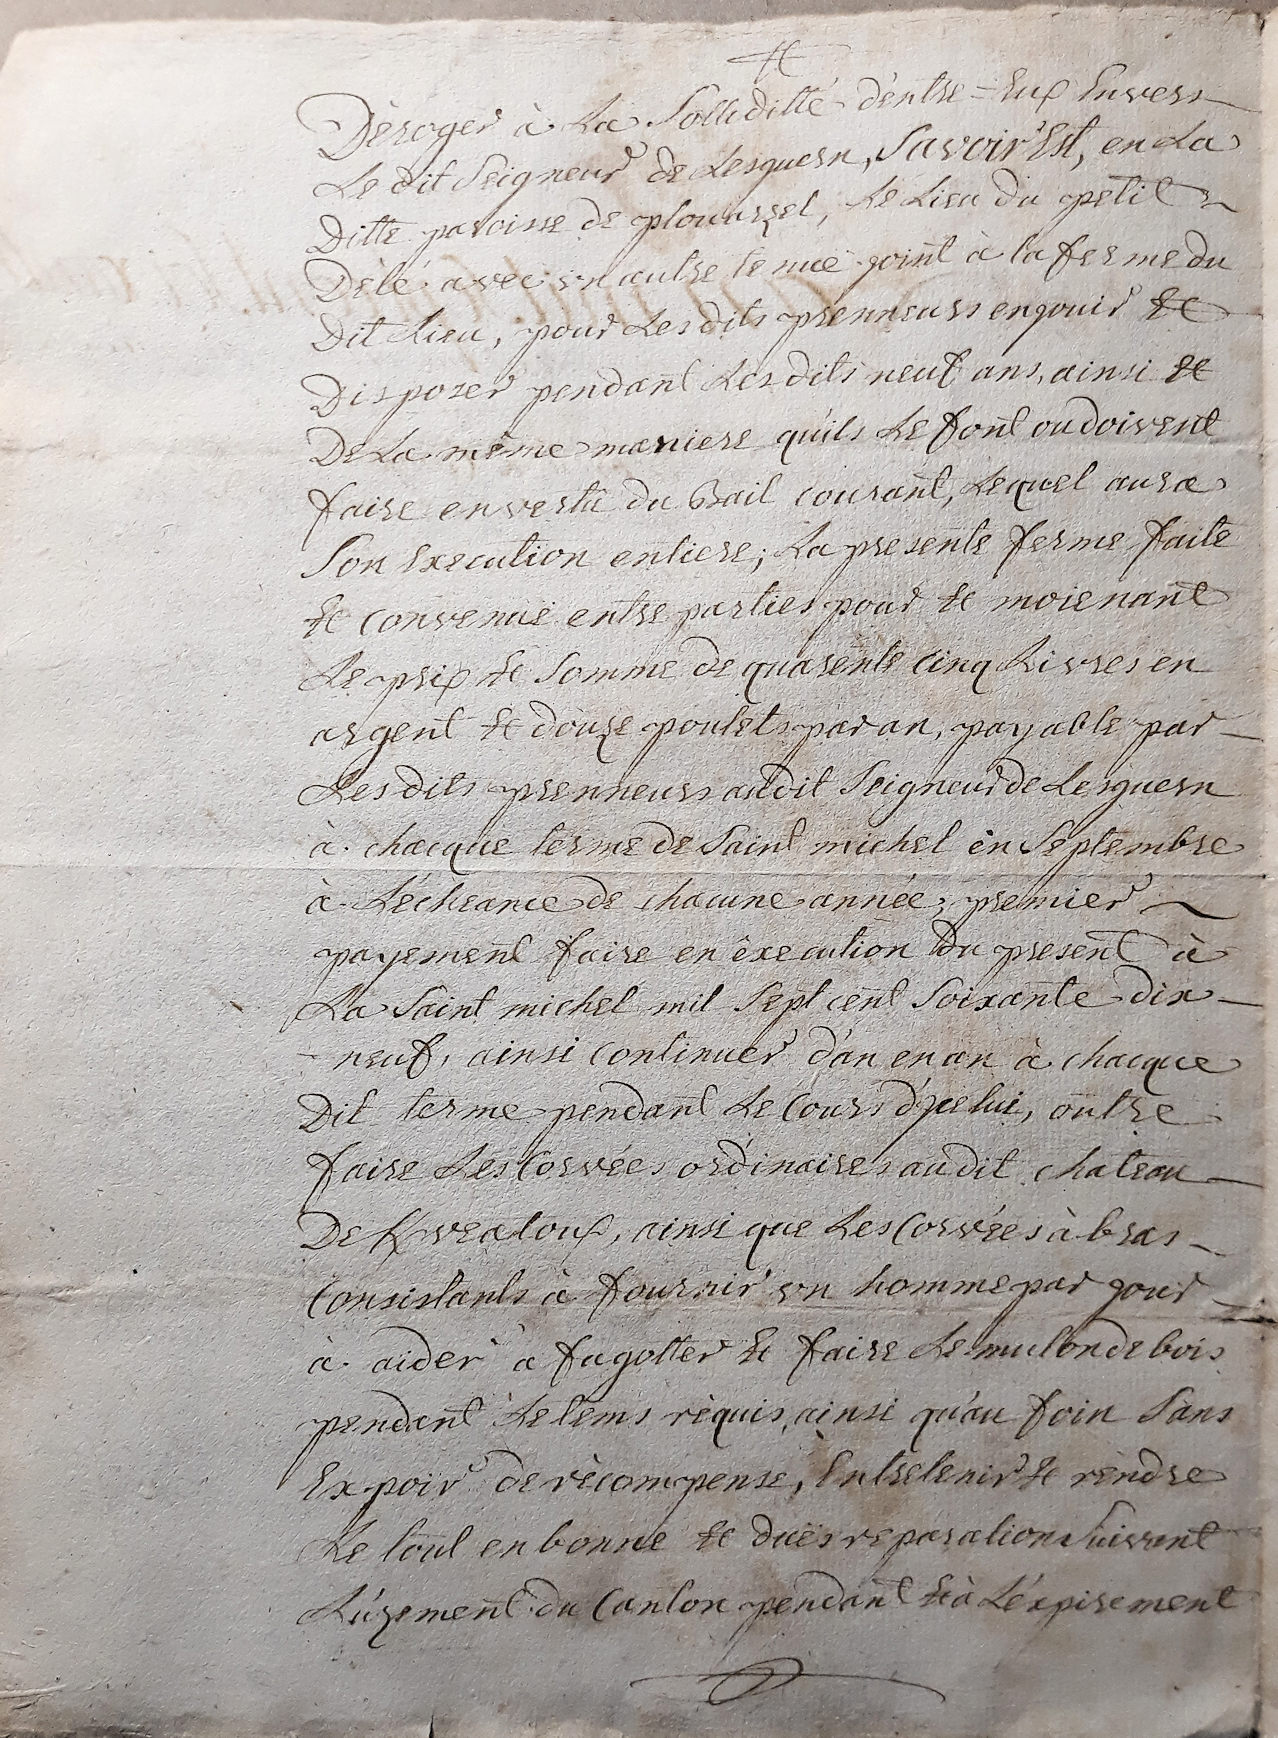 Déroger à La Solliditté d'entre = Eux Envers
Le dit Seigneur de Lesguern, Savoir Est, en La
Ditte paroisse de plouarzel, Le Lieu du petit
Délé avec un autre tenüe joint à la ferme du
Dit Lieu, pour Lesdits prenneurs en jouir Et
Disposer pendant Lesdits neuf ans, ainsi Et
De La même maniere qu'ils Le font ou doivent
faire en vertu du Bail courant, Lequel aura
Son Execution entiere; La presente ferme faite
Et convenüe entre parties pour Et moienant
Le prix Et Somme de quarente cinq Livres en
argent Et douze poulets par an, payable par
Lesdits prenneurs audit Seigneur de Lesguern
à chacque terme de Saint michel en Septembre
à L'écheance de chacune année; premier
payement faire en éxecution du present à
La Saint michel mil Sept cent Soixante dix
neuf, ainsi continuer d'an en an à chacque
Dit terme pendant Le Cours d'ycelui, outre
faire Les Corvées ordinaires audit chateau
De Kveatoux, ainsi que Les Corvées à bras
Consistants à fournir un homme par jour
à aider à fagotter Et faire Le mulon de bois
pendant Le tems réquis, ainsi qu'au foin Sans
Expoir de récompense, Entretenir Et réndre
Le tout en bonne Et duës reparation Suivant
L'územent du Canton pendant Et à L'éxpirement